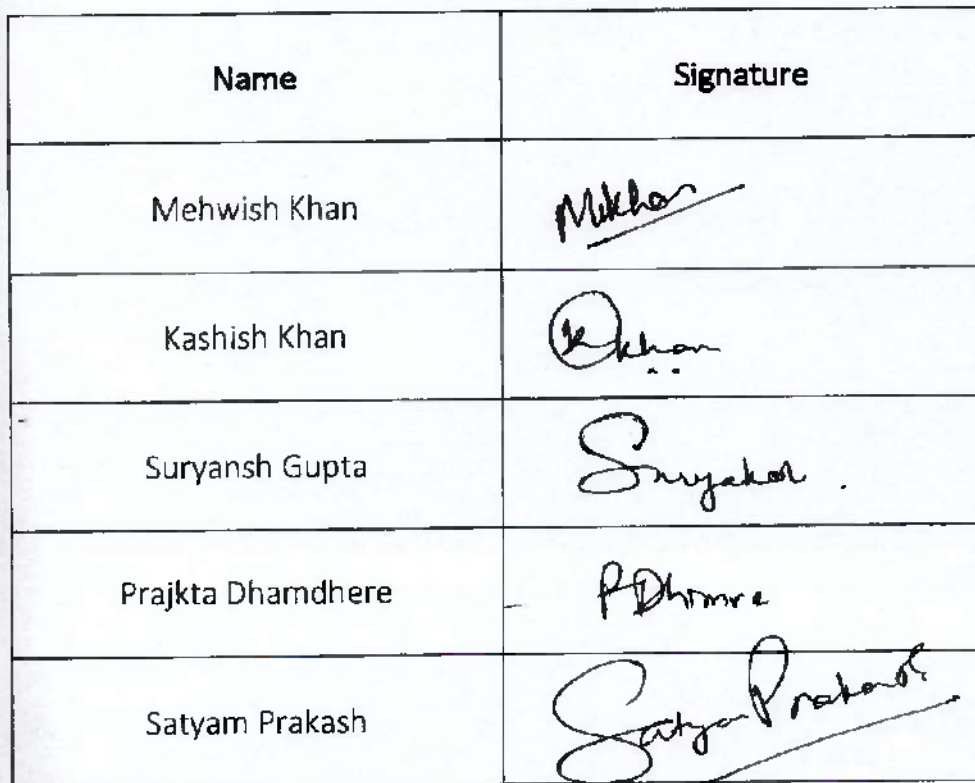 Name Signature
Mehwish Khan Mkhan
Kashish Khan K khan
Suryansh Gupta
Prajkta Dhamdhere
Satyam Prakash Satyam Prakash